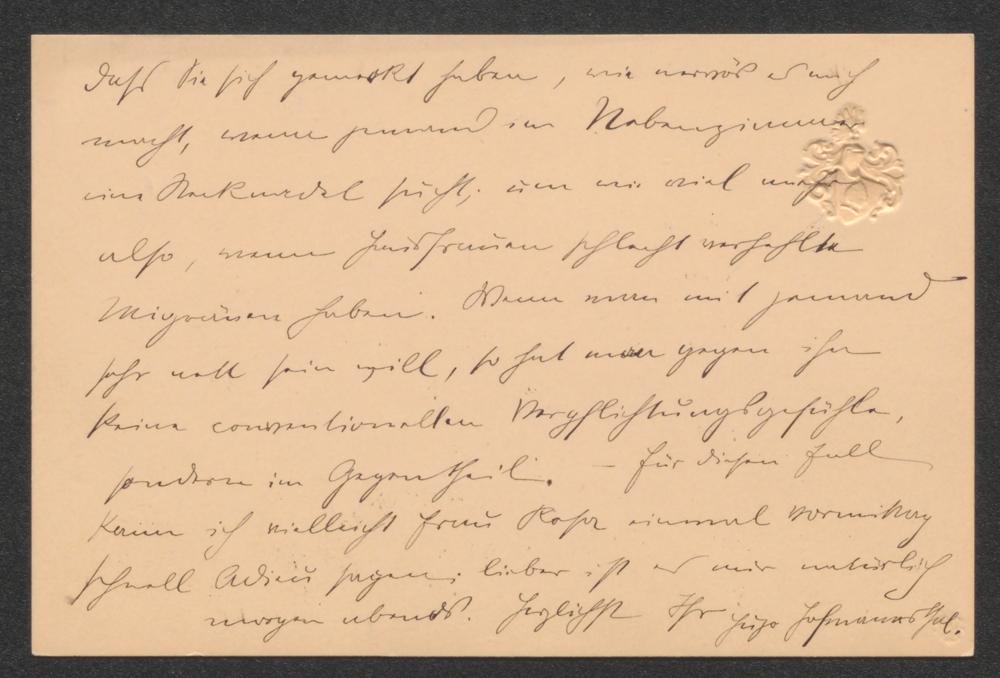 dass Sie sich gemerkt haben, wie nervös es mich
macht, wenn jemand im Nebenzimmer
eine Stecknadel sucht; um wie viel mehr
also, wenn Hausfrauen schlecht verhehlte
Migränen haben. Wenn man mit jemand
sehr nett sein will, so hat man gegen ihn
keine conventionellen Verpflichtungsgefühle,
sondern im Gegentheil. – Für diesen Fall
kann ich vielleicht Frau Rosa einmal vormittag
schnell Adieu sagen; lieber ist es mir natürlich
morgen abends. Herzlichst Ihr Hugo Hofmannsthal.